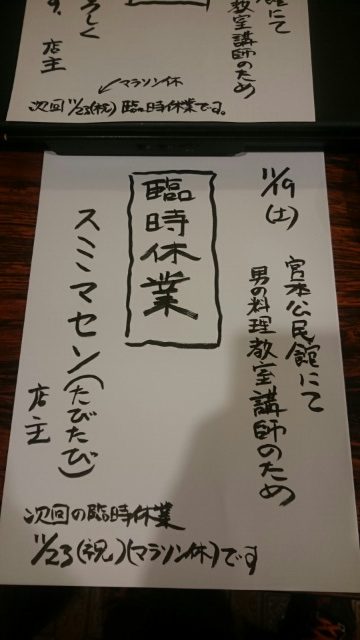 館にて
教室講師のため
ろしく
す。
店主
マラソン休
次回 11/23(祝) 臨時休業です。
11/19(土)
公民館にて
男の料理教室講師のため
臨時休業
スミマセン(たびたび)
店主
次回の臨時休業
11/23(祝)(マラソン休)です